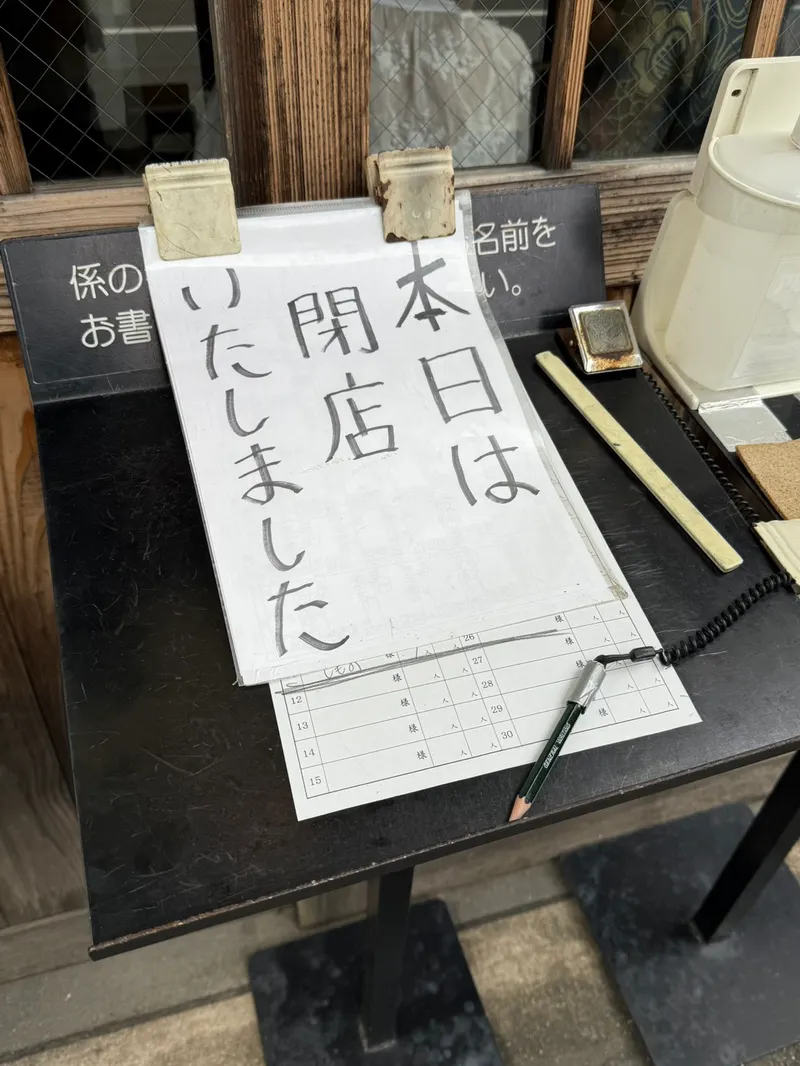 本日は
閉店
いたしました
係の
名前を
お書
い。
26
様 人 人
27
様 人 人
12 様 人 人
28
13 様 人 人
29 様 人 人
14 様 人 人
30
15